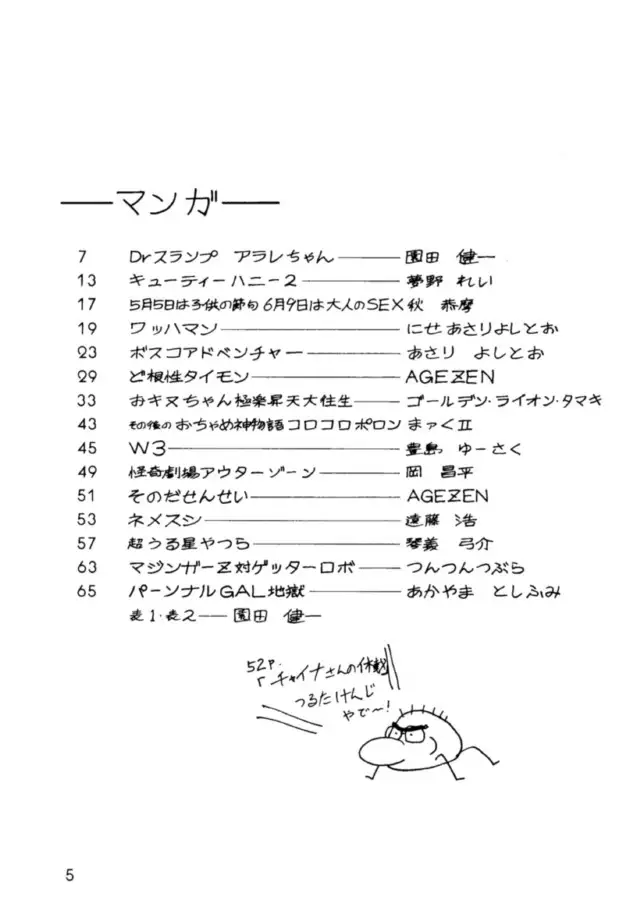 マンガ
7 Drスランプ アラレちゃん 園田 健一
13 キューティーハニー2 夢野 れい
17 5月5日は子供の節句 6月9日は大人のSEX 秋 恭摩
19 ワッハマン にせ あさりよしとお
23 ボスコアドベンチャー あさり よしとお
29 ど根性タイモン AGEZEN
33 おキヌちゃん極楽昇天大往生 ゴールデン・ライオン・タマキ
43 その後のおちゃめ神物語コロコロポロン まァくII
45 W3 豊島 ゆーさく
49 怪奇劇場アウターゾーン 岡 昌平
51 そのだせんせい AGEZEN
53 ネメスシ 遠藤 浩
57 超うる星やつら 琴義 弓介
63 マジンガーZ対ゲッターロボ つんつんつぶら
65 パーソナルGAL地獄 あかやま としふみ
表1・表2 園田 健一
52P.
「チャイナさんの休戦
つるたけんじ
やで〜!
5